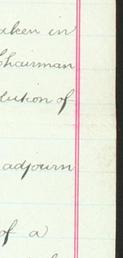 aken in
Chairman
lution of
adjourn
of a